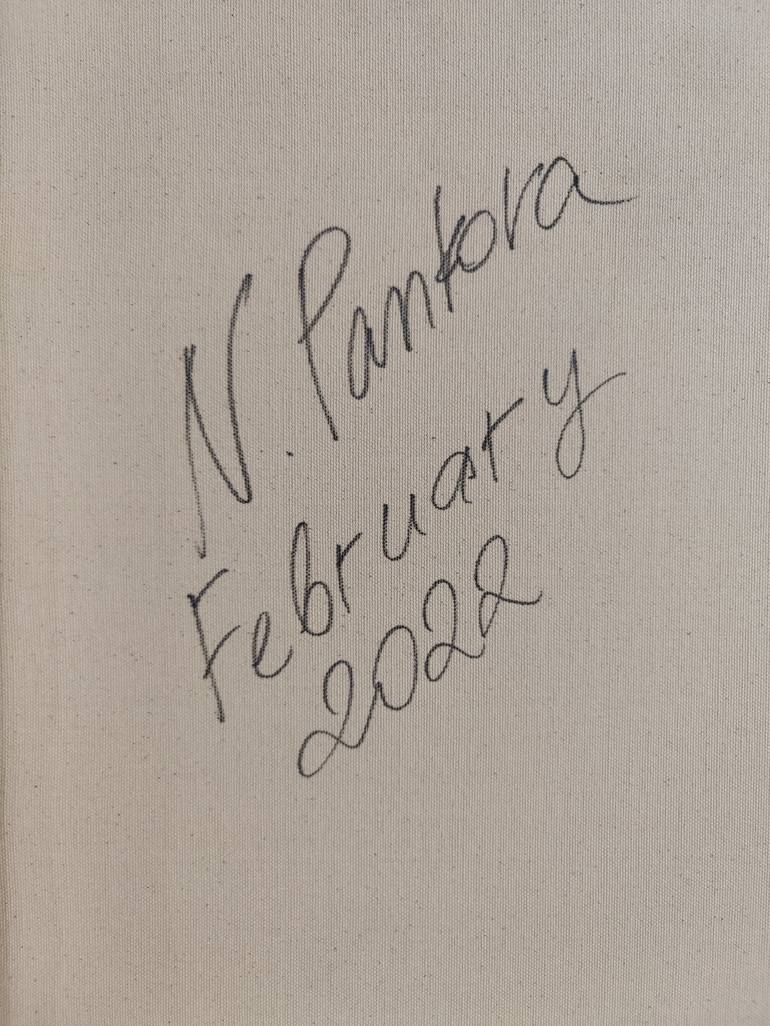 N. Pankova
February
2022